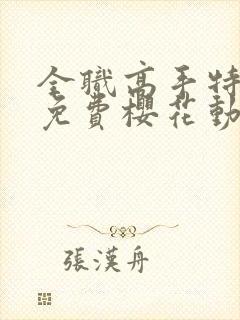 全職高手特
免費櫻花動
張漢舟